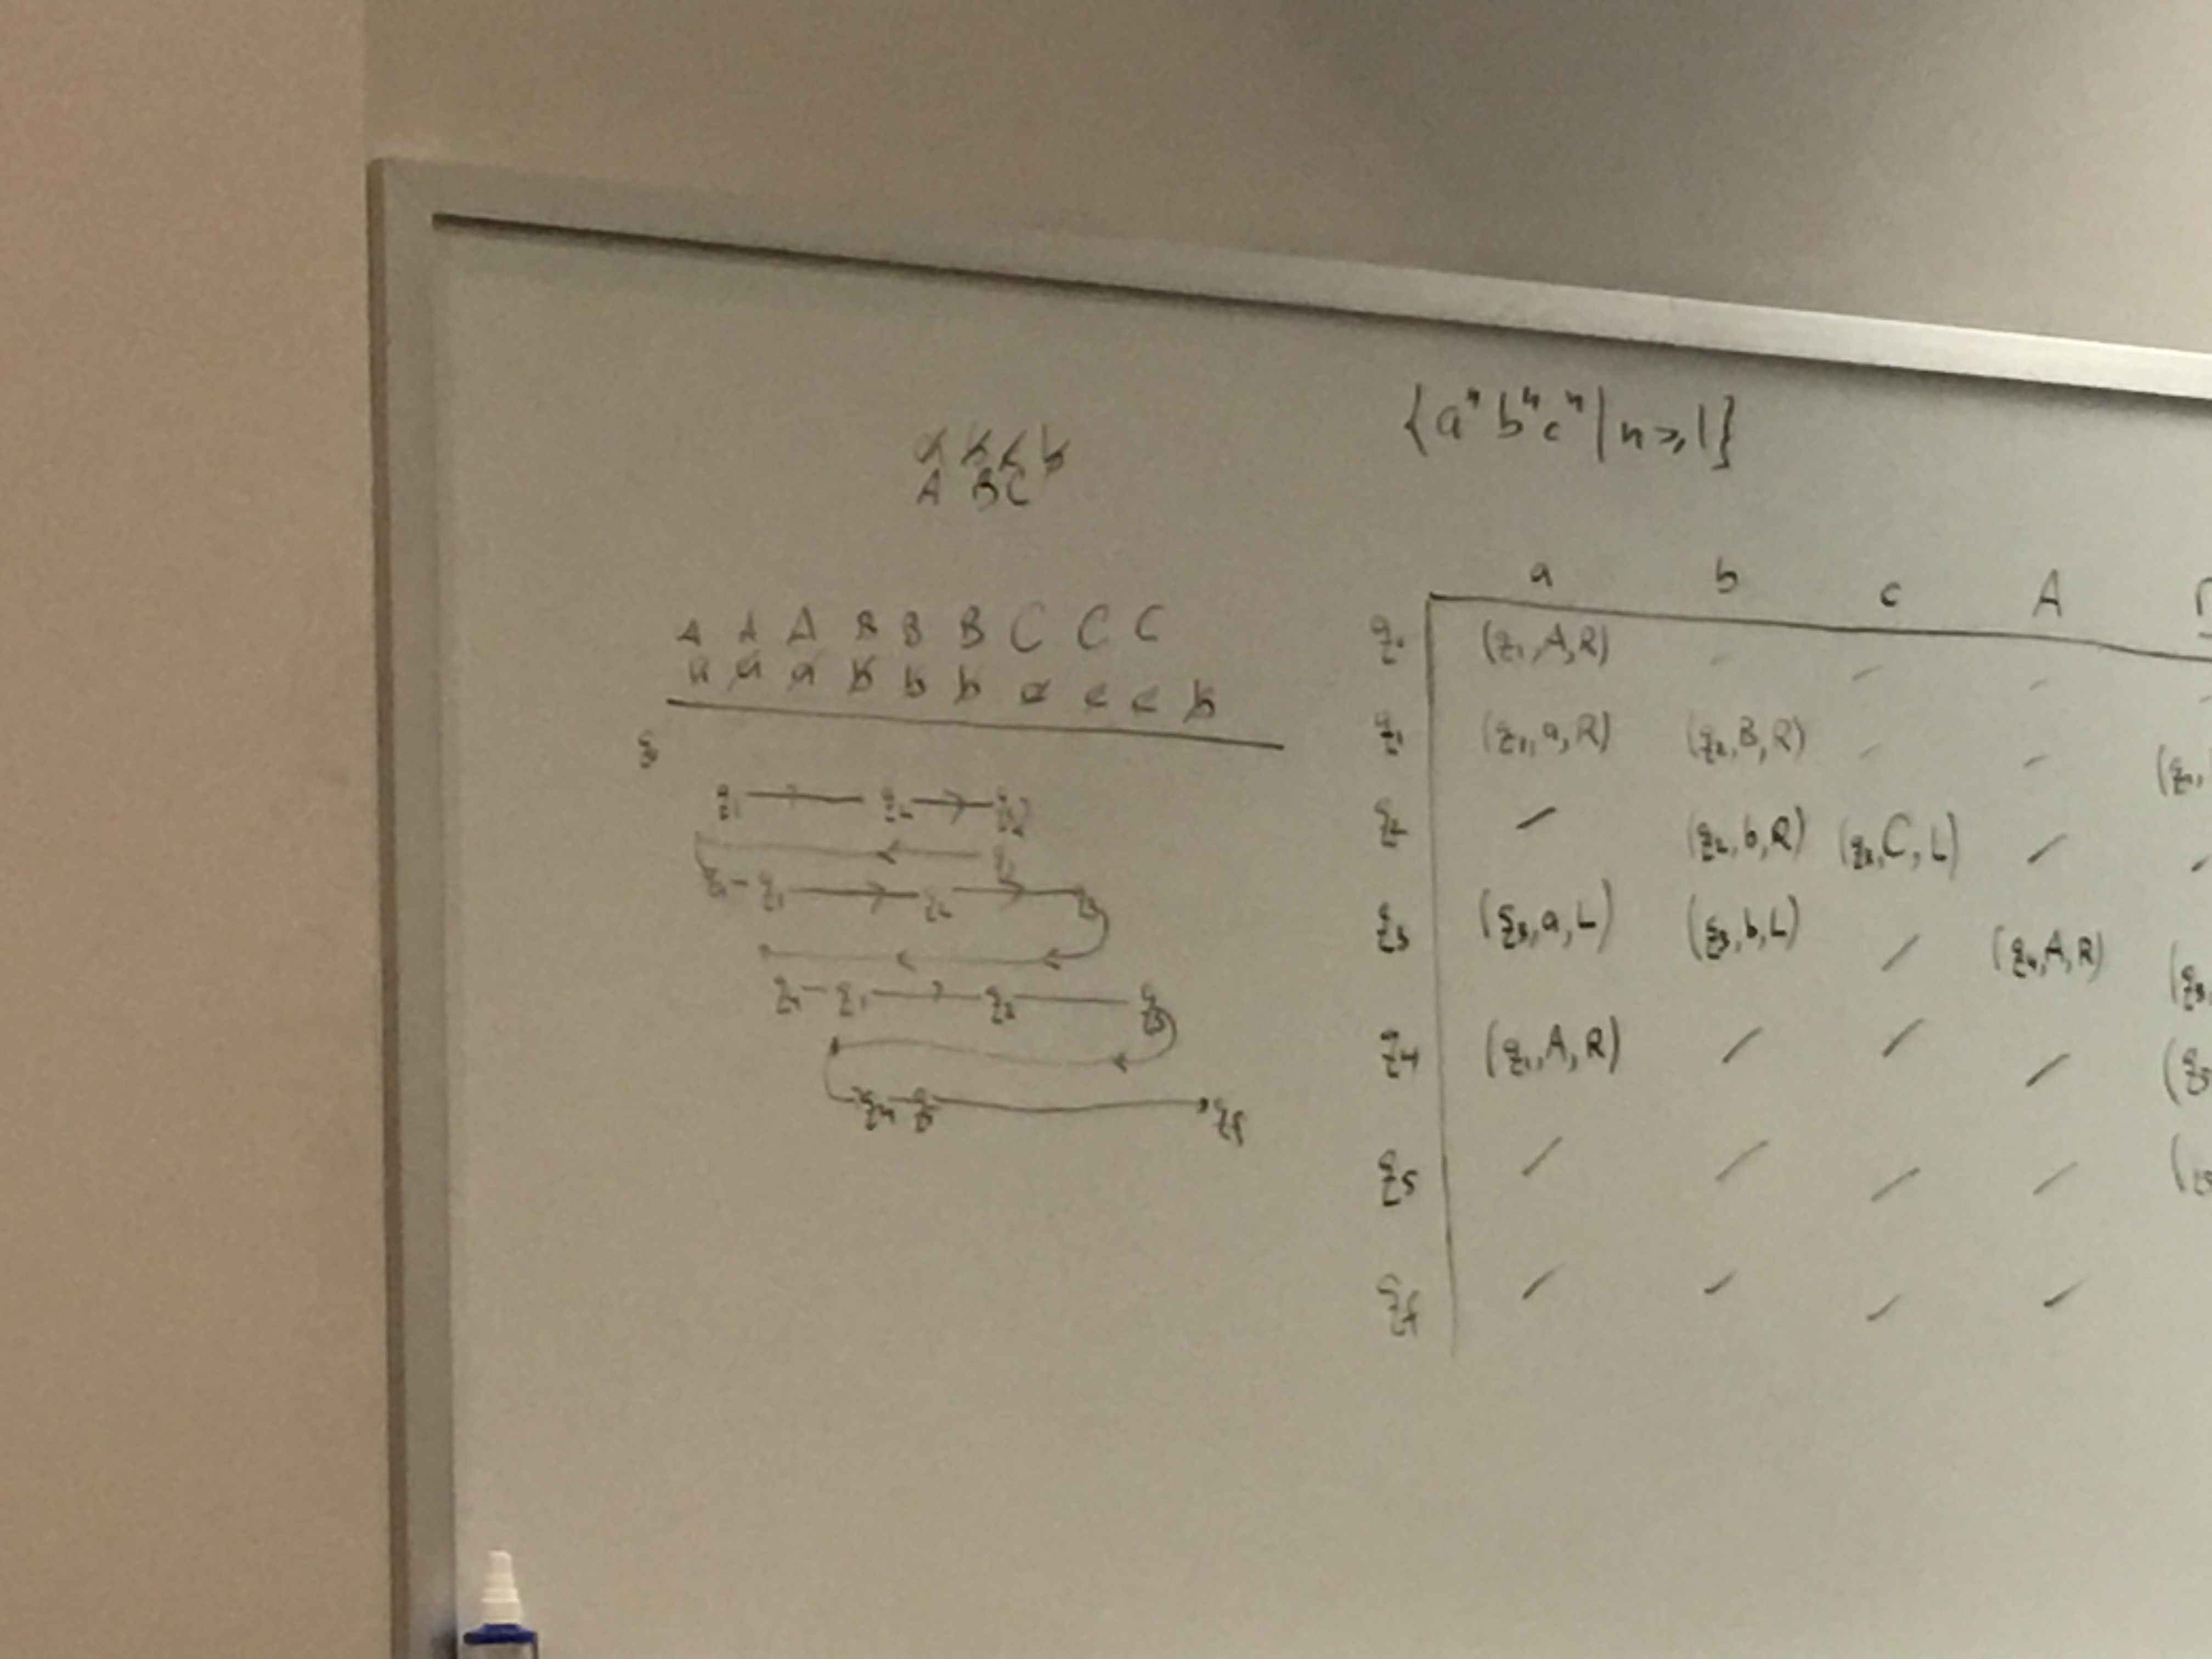 {aⁿ bⁿ cⁿ | n ≥ 1}
a b c b
A B C
A A A B B B C C C
a a a b b b c c c b
q₁ q₂
q₁ q₂ q₃
q₄ q₁ q₂ q₃
q₄ q₅ qf
a b c A
q₀ (q₁, A, R) - - -
q₁ (q₁, a, R) (q₂, B, R) - - (q₁,
q₂ / (q₂, b, R) (q₃, C, L) / /
q₃ (q₃, a, L) (q₃, b, L) / (q₄, A, R) (q₃,
q₄ (q₁, A, R) / / / (q₅
q₅ / / / / (q₅
qf / / / /